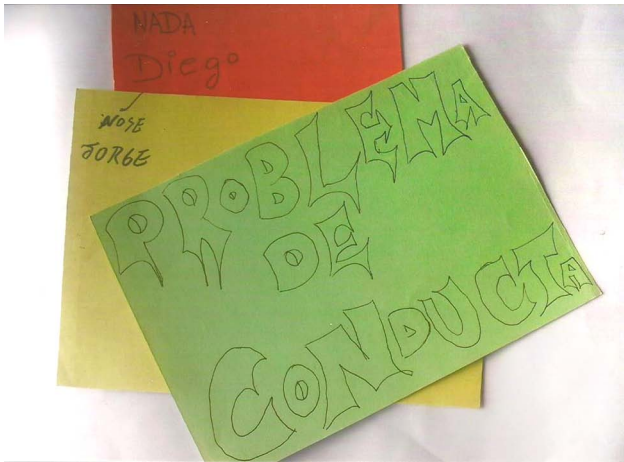 NADA
Diego
NOSE
JORGE
PROBLEMA
DE
CONDUCTA